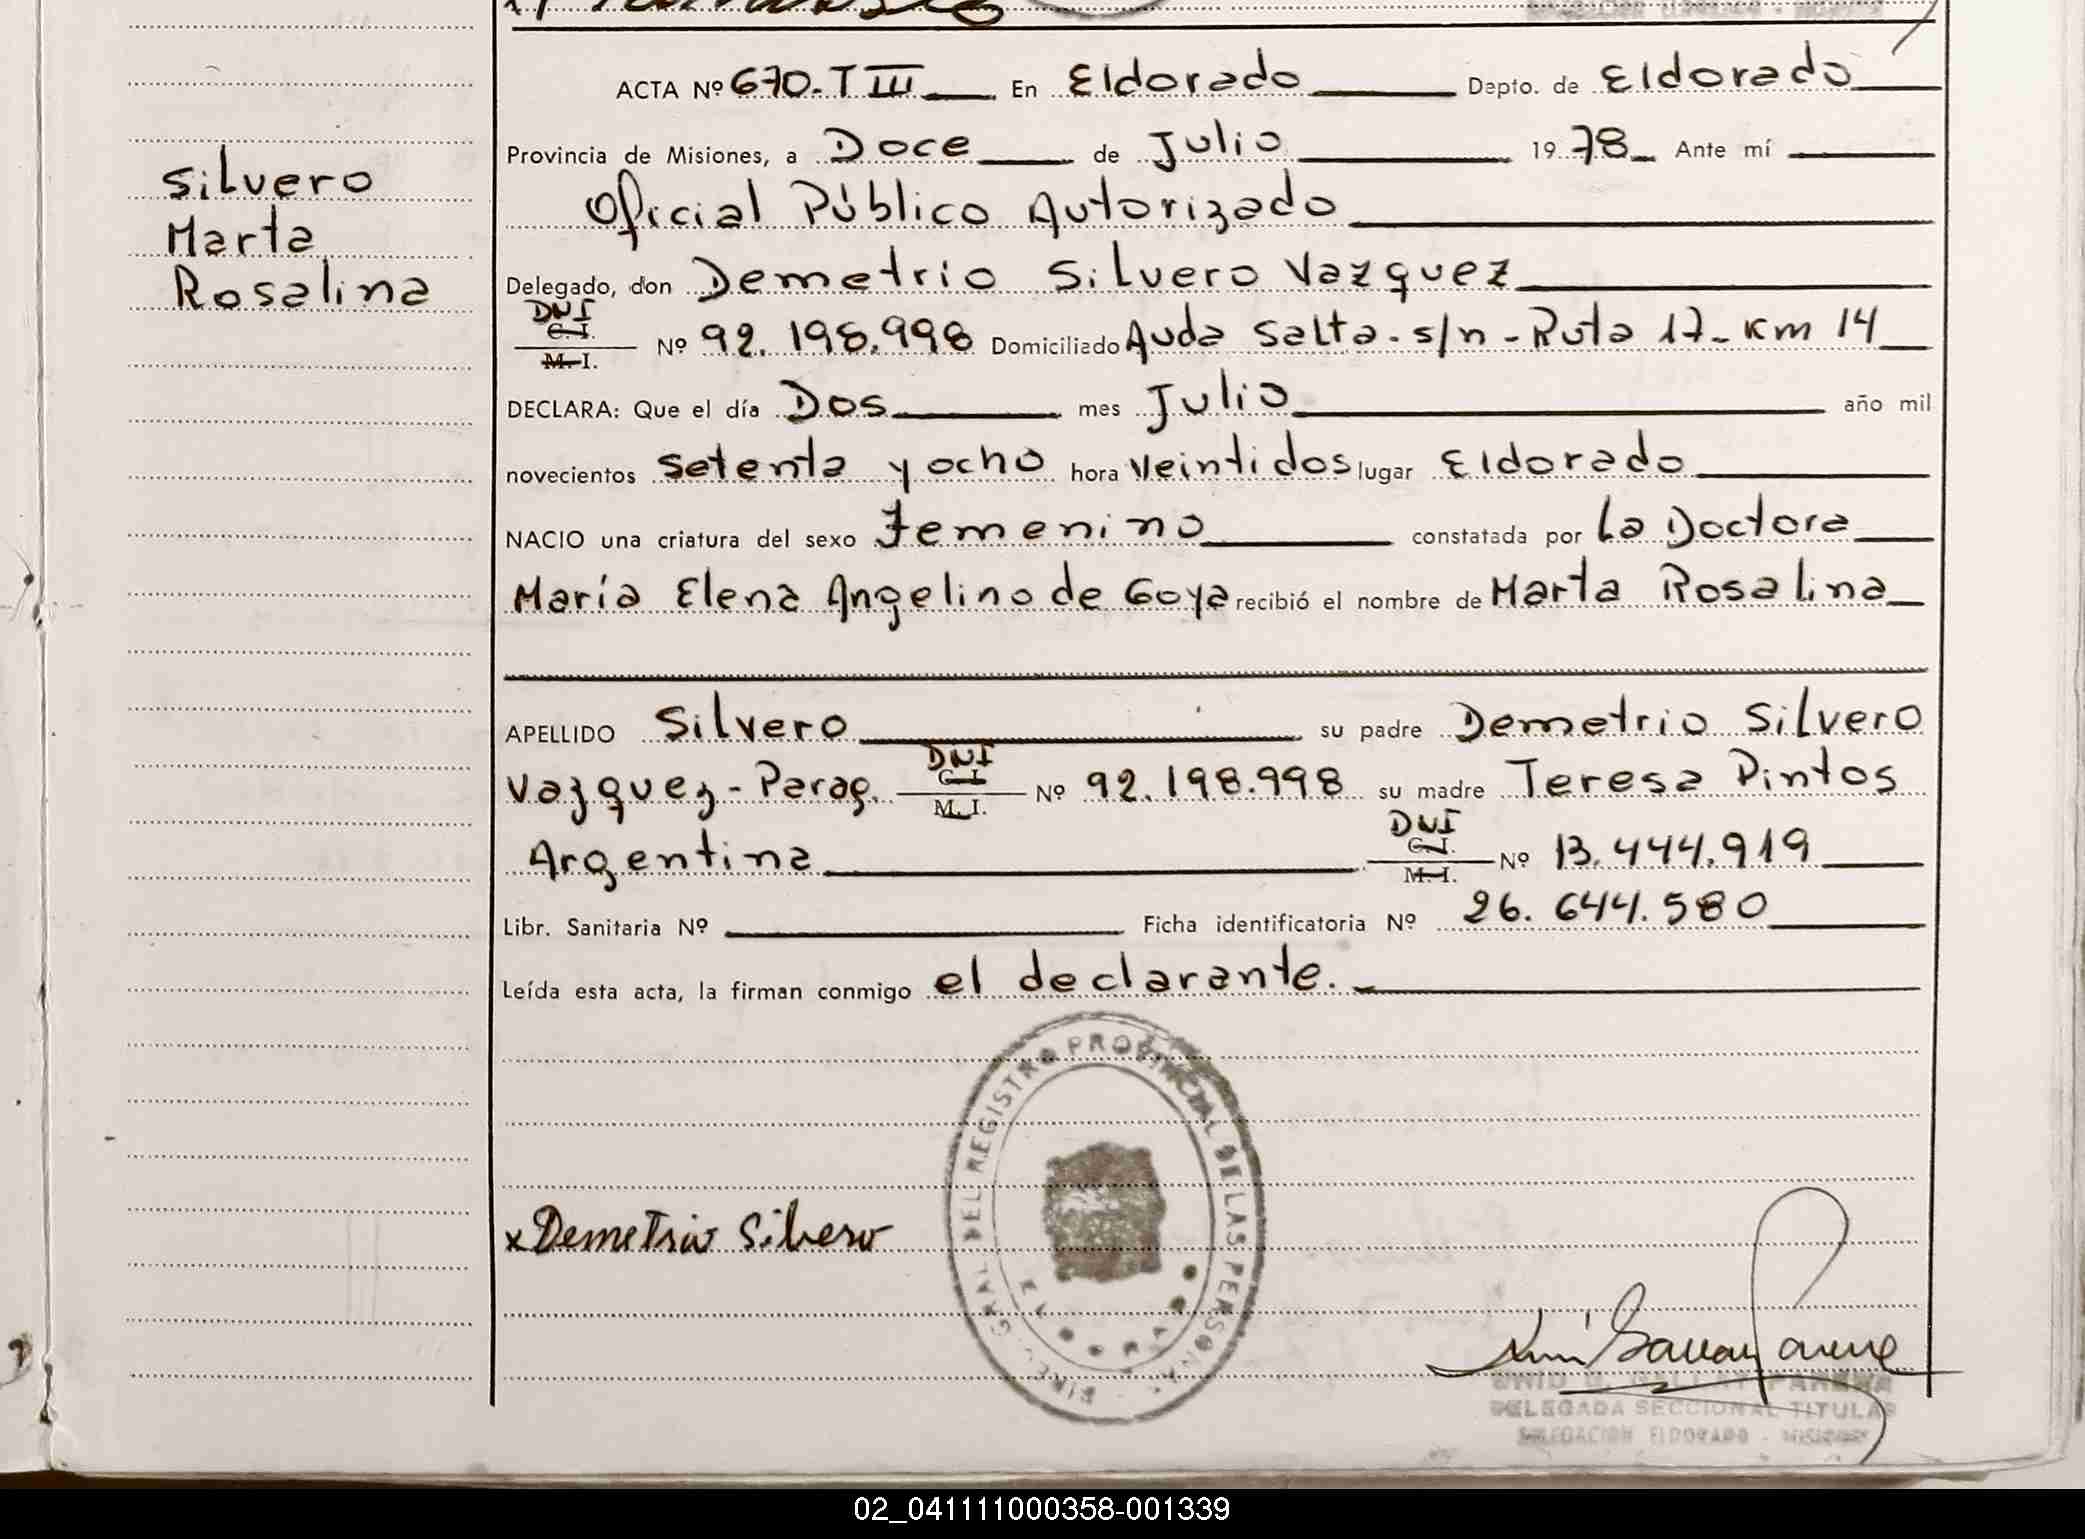 ACTA Nº 670. T III En Eldorado Depto. de Eldorado
Provincia de Misiones, a Doce de Julio 1978 Ante mí
Oficial Público Autorizado
Silvero
Marta
Rosalina
Delegado, don Demetrio Silvero Vazquez
DNI
C.I.
M.I. Nº 92.198.998 Domiciliado Avda Salta - s/n - Ruta 17 - Km 14
DECLARA: Que el día Dos mes Julio año mil
novecientos setenta y ocho hora veintidos lugar Eldorado
NACIO una criatura del sexo Femenino constatada por La Doctora
María Elena Angelino de Goya recibió el nombre de Marta Rosalina
APELLIDO Silvero su padre Demetrio Silvero
Vazquez - Parag. DNI C.I. M.I. Nº 92.198.998 su madre Teresa Pintos
Argentina DNI C.I. M.I. Nº 13.444.919
Libr. Sanitaria Nº Ficha identificatoria Nº 26.644.580
Leída esta acta, la firman conmigo el declarante.
GRAL DEL REGISTRO PROVINCIAL DE LAS PERSONAS
x Demetrio Silvero
DELEGADA SECCIONAL TITULAR
DELEGACION ELDORADO - MISIONES
02_041111000358-001339